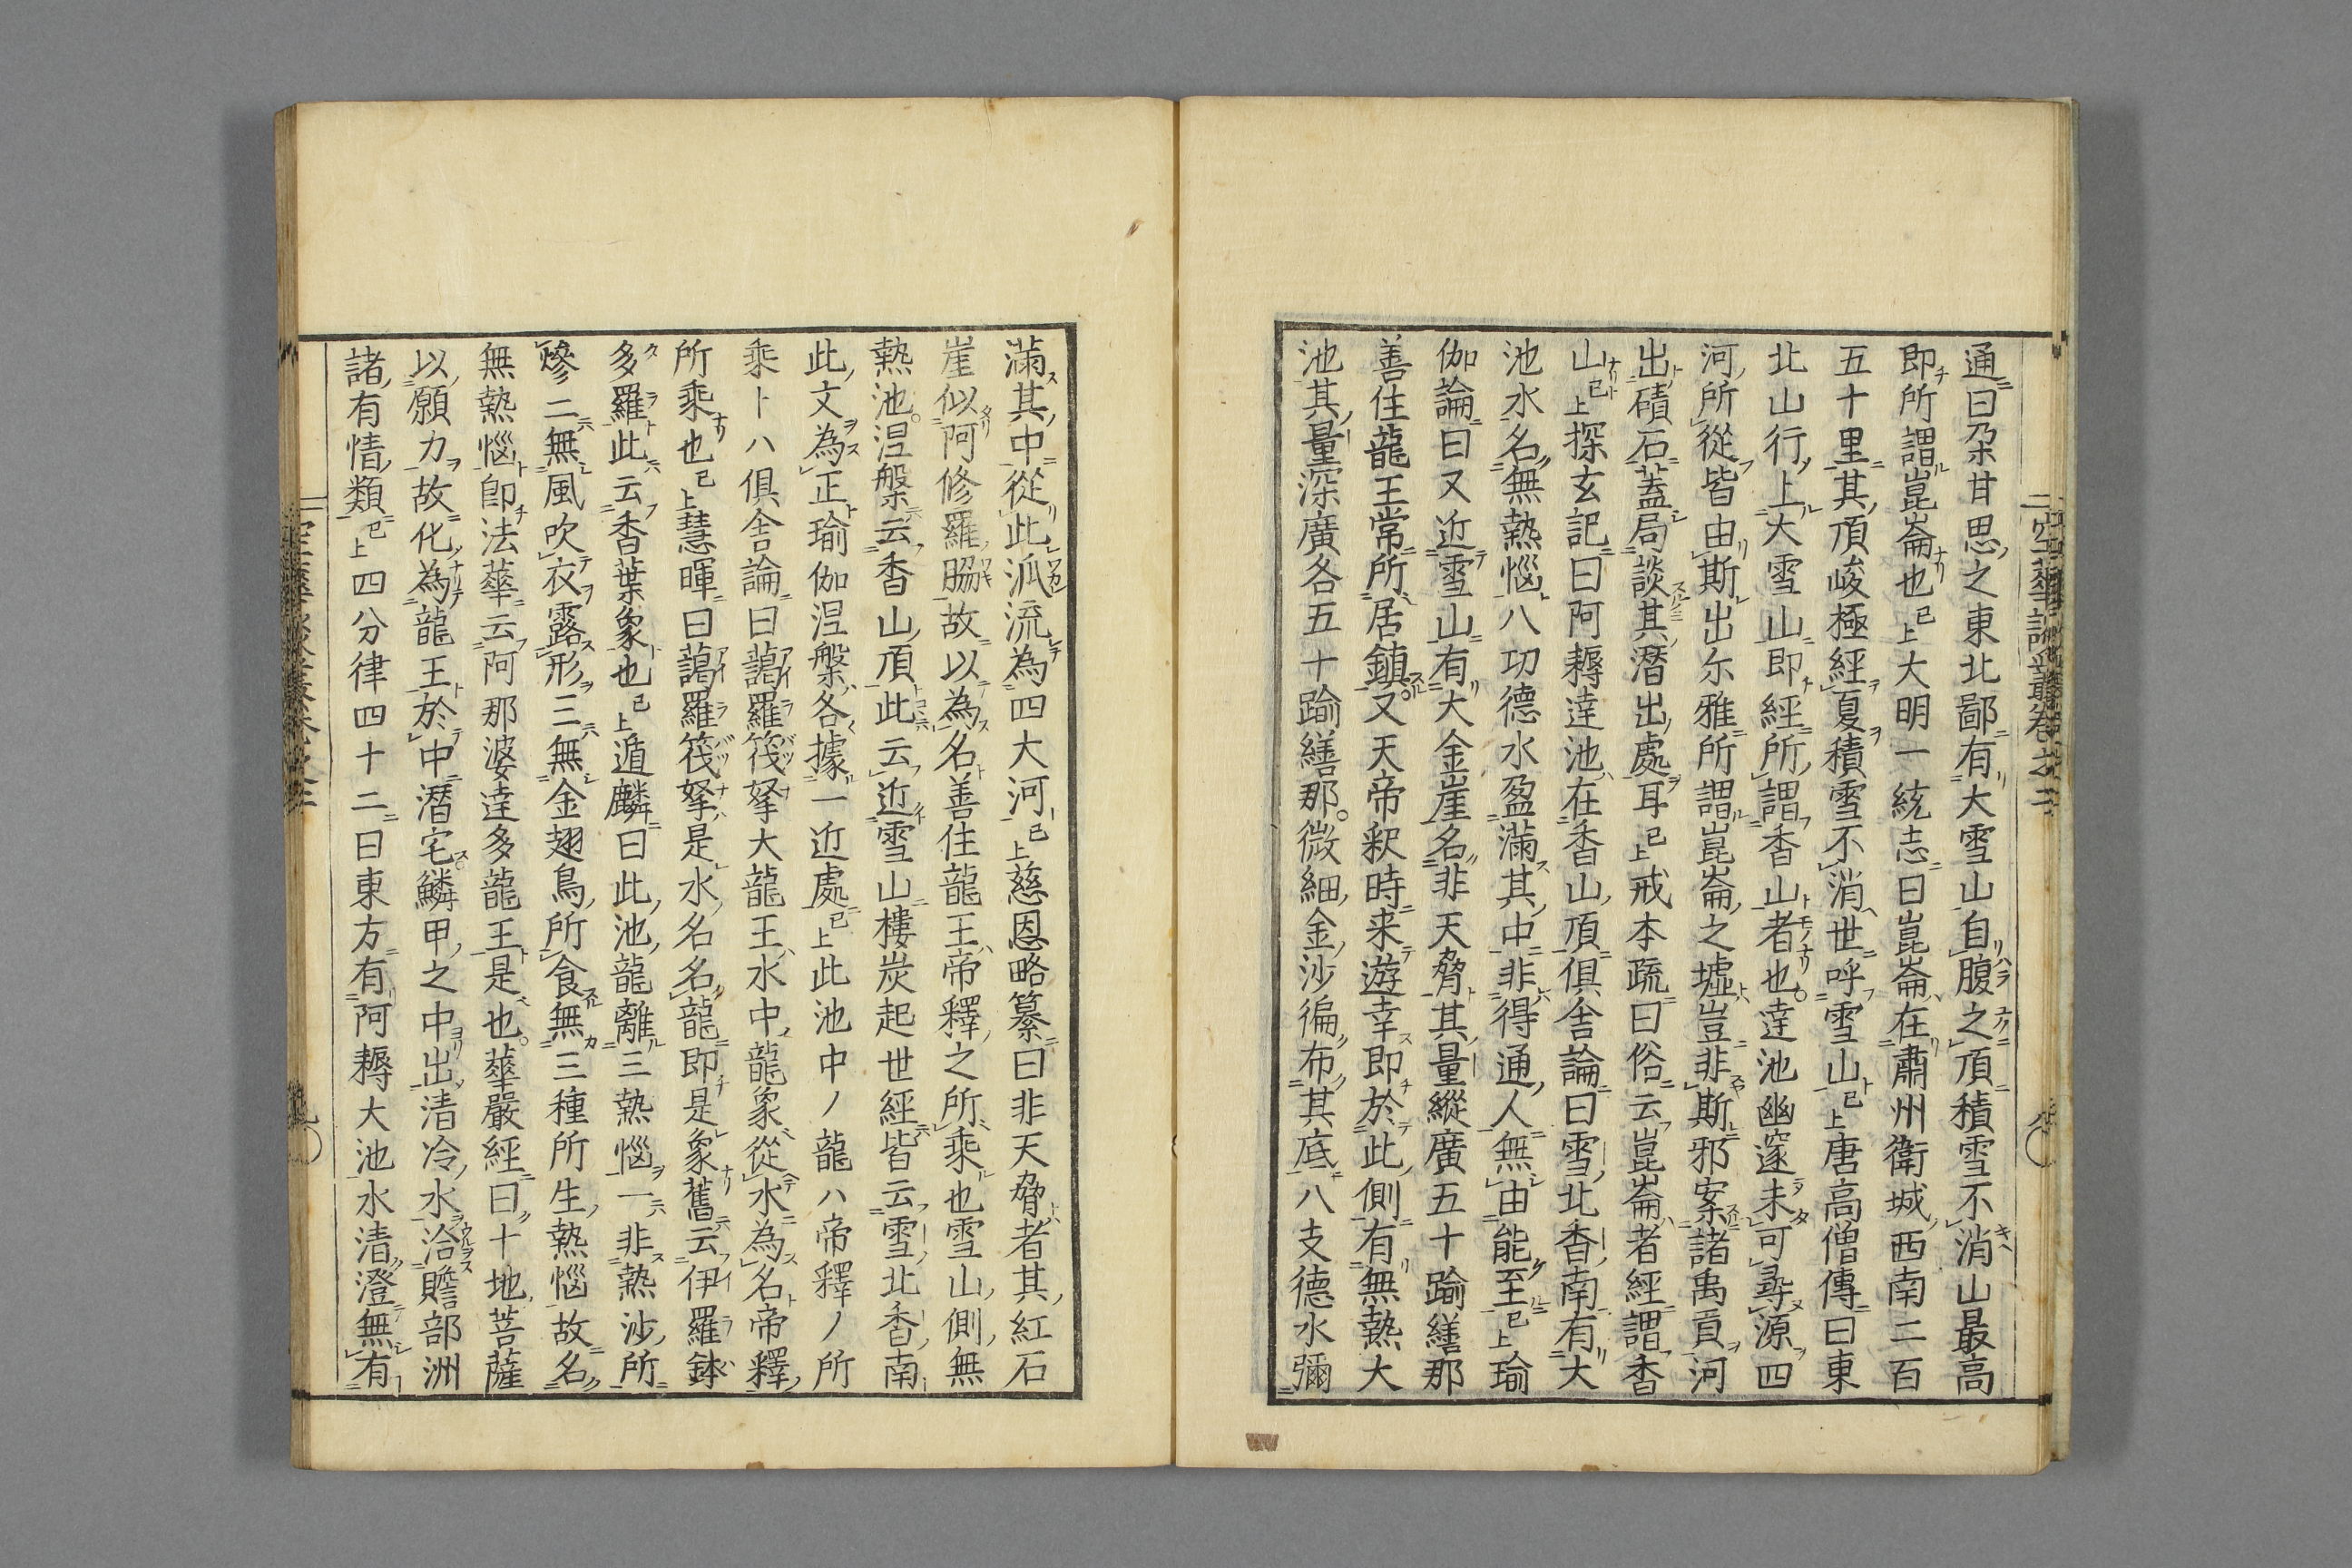 通曰朶甘思之東北鄙有大雪山自腹之頂積雪不消山最高
即所謂崑崙也已上大明一統志曰崑崙在肅州衛城西南二百
五十里其頂峻極經夏積雪不消世呼雪山已上唐高僧傳曰東
北山行上大雪山即經所謂香山者也達池幽邃未可尋源四
河所從皆由斯出尓雅所謂崑崙之墟豈非斯邪案諸禹貢河
出磧石蓋局談其潛出處耳已上戒本疏曰俗云崑崙者經謂香
山已上探玄記曰阿耨達池在香山頂俱舍論曰雪北香南有大
池水名無熱惱八功德水盈滿其中非得通人無由能至已上瑜
伽論曰又近雪山有大金崖名非天脅其量縱廣五十踰繕那
善住龍王常所居鎮又天帝釈時来遊幸即於此側有無熱大
池其量深廣各五十踰繕那微細金沙徧布其底八支德水彌
滿其中從此派流為四大河已上慈恩略纂曰非天脅者其紅石
崖似阿修羅脇故以為名善住龍王帝釋之所乘也雪山側無
熱池涅槃云香山頂此云近雪山樓炭起世經皆云雪北香南
此文為正瑜伽涅槃各據一近處已上此池中ノ龍ハ帝釋ノ所
乘ト八俱舍論曰藹羅筏拏大龍王水中龍象從水為名帝釋
所乘也已上慧暉曰藹羅筏拏是水名名龍即是象舊云伊羅鉢
多羅此云香葉象也已上遁麟曰此池龍離三熱惱一非熱沙所
燦二無風吹衣露形三無金翅鳥所食無三種所生熱惱故名
無熱惱即法華云阿那婆達多龍王是也華嚴經曰十地菩薩
以願力故化為龍王於中潛宅鱗甲之中出清冷水洽贍部洲
諸有情類已上四分律四十二曰東方有阿耨大池水清澄無有